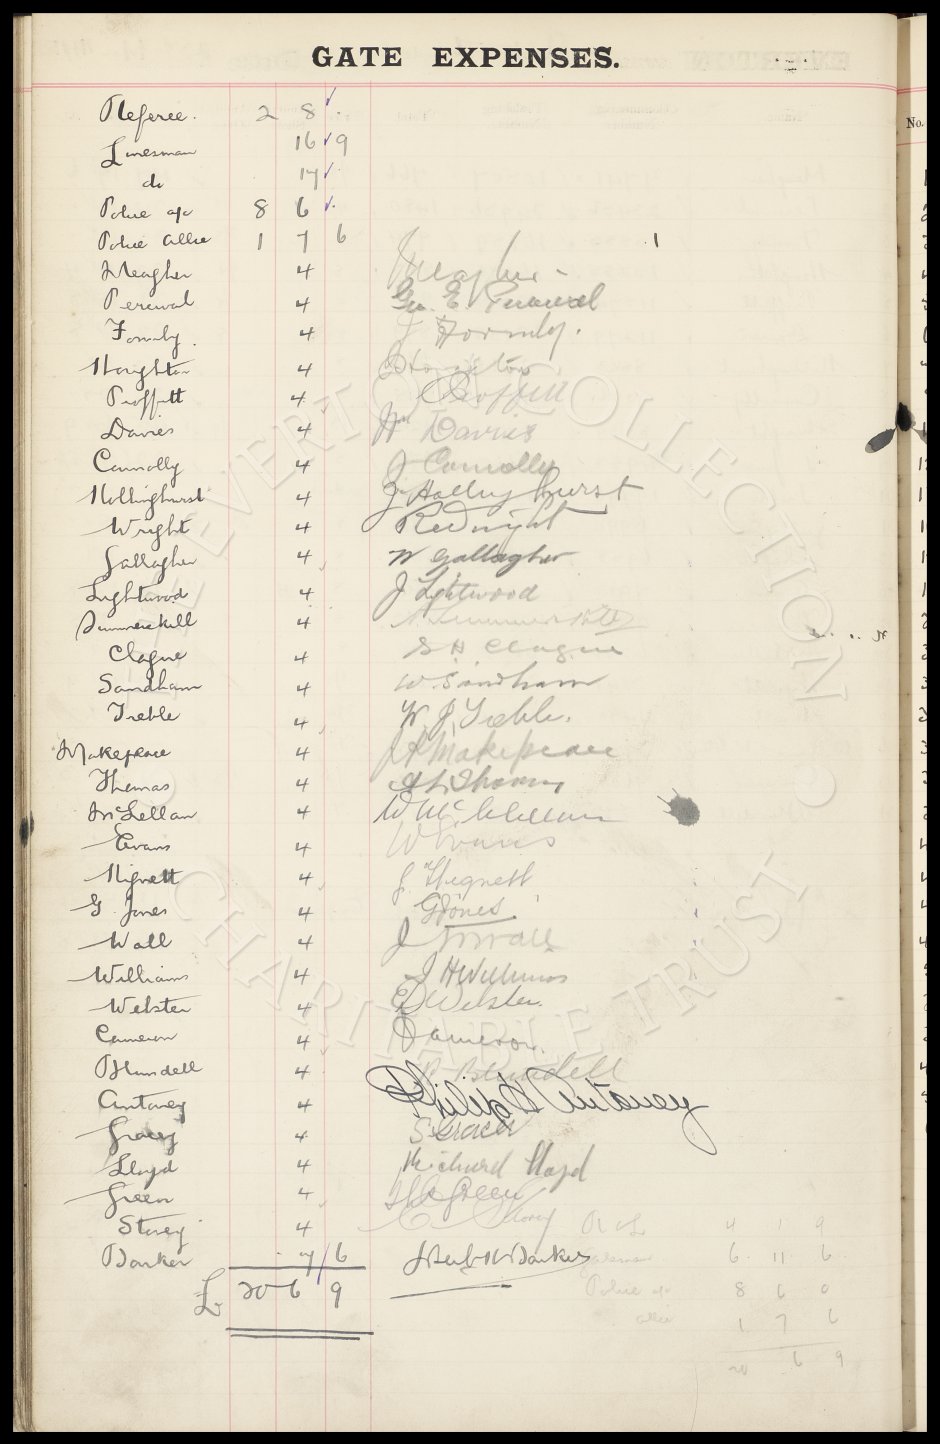 GATE EXPENSES.
No.
Referee. 2 8
Linesman 16 9
do 17
Police a/c 8 6
Police allce 1 7 6
Meagher 4 Meagher
Percival 4 Geo. E Percival
Formby. 4 J Formby.
Houghton 4 Houghton
Proffitt 4 Proffitt
Davies 4 Wm Davies
Connolly 4 J Connolly
Hollinghurst 4 J Hollinghurst
Wright 4 R Wright
Gallagher 4 W Gallagher
Lightwood 4 J Lightwood
Summerskill 4 Summerskill
Clague 4 S H Clague
Sandham 4 W. Sandham
Treble 4 W. J. Treble.
Makepeace 4 Makepeace
Thomas 4 Thomas
McLellan 4 W McLellan
Evans 4 W Evans
Hignett 4 J. Hignett
G. Jones 4 G Jones
Wall 4 J Wall
Williams 4 J H Williams
Webster 4 Webster.
Cameron 4 Cameron.
Blundell 4 Blundell
Antoney 4 Philip H Antoney
Gracey 4 S Gracey
Lloyd 4 Richard Lloyd
Green 4 Green
Storey 4 Storey
R & L 4 1 9
Barker 7/6 Herbt H Barker
Gatemen 6 11 6
£ 20 6 9
Police a/c 8 6 0
allce 1 7 6
20 6 9
THE EVERTON COLLECTION CHARITABLE TRUST